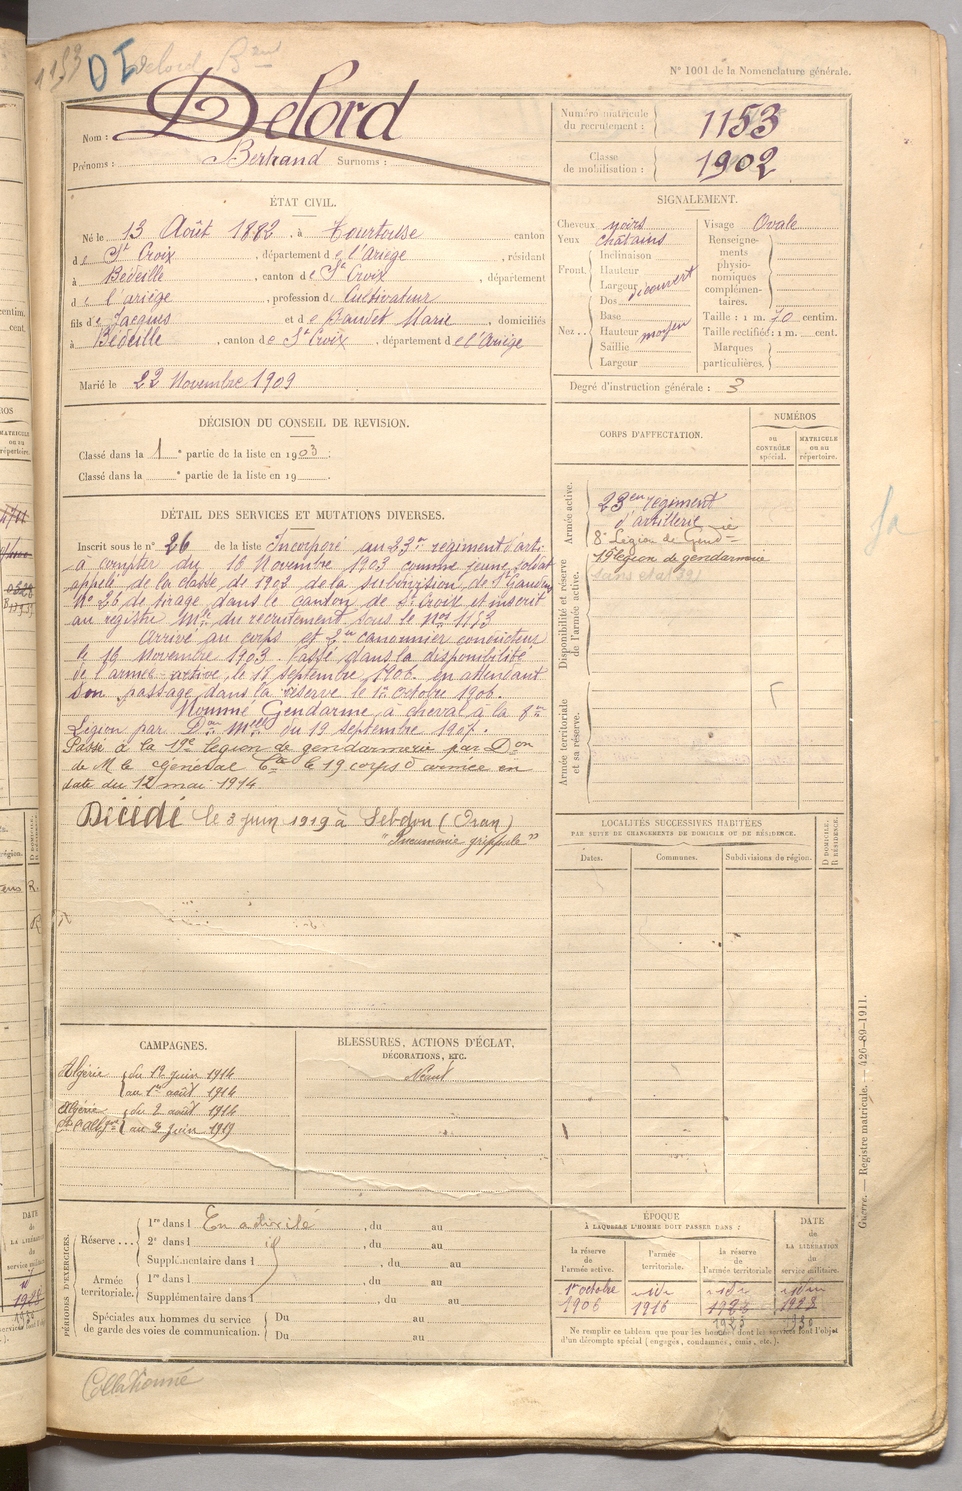 1153 DÉ Delord B
N° 1001 de la Nomenclature générale.
Nom : Delord
Prénoms : Bertrand Surnoms :
Numéro matricule du recrutement : 1153
Classe de mobilisation : 1902
ÉTAT CIVIL.
Né le 13 Août 1882, à Tourtouse canton
de St Croix, département de l'Ariège, résidant
à Bédeille, canton de St Croix, département
de l'ariège, profession de Cultivateur
fils de Jacques et de Baudet Marie, domiciliés
à Bédeille, canton de St Croix, département de l'Ariège
Marié le 22 Novembre 1909
SIGNALEMENT.
Cheveux noirs
Yeux chatains
Front.
Inclinaison
Hauteur
Largeur découvert
Nez...
Dos
Base
Hauteur moyen
Saillie
Largeur
Visage Ovale
Renseignements physionomiques complémentaires.
Taille : 1 m. 70 centim.
Taille rectifiée : 1 m. cent.
Marques particulières.
Degré d'instruction générale : 3
DÉCISION DU CONSEIL DE REVISION.
Classé dans la 1 e partie de la liste en 1903 ;
Classé dans la e partie de la liste en 19 .
CORPS D'AFFECTATION.
NUMÉROS
au CONTRÔLE spécial.
MATRICULE ou au répertoire.
Armée active.
23en regiment
d'artillerie
8e Légion de Gendie
19e légion de gendarmerie
Disponibilité et réserve de l'armée active.
Armée territoriale et sa réserve.
DÉTAIL DES SERVICES ET MUTATIONS DIVERSES.
Inscrit sous le n° 26 de la liste Incorporé au 23e regiment d'arti
à compter du 16 Novembre 1903 comme jeune soldat
appelé de la classe de 1902 de la subdivision de St Gaudens
N° 26 de tirage dans le canton de St Croix et inscrit
au registre Mle du recrutement sous le Nos 1153
Arrivé au corps et 2e canonnier conducteur
le 16 Novembre 1903. Passé dans la disponibilité
de l'armée active, le 18 septembre 1906. en attendant
son passage dans la réserve le 1er octobre 1906.
Nommé Gendarme à cheval à la 8me
Légion par Don Mlle du 19 septembre 1907.
Passé à la 19e légion de gendarmerie par Don
de M le Général Ct le 19 corps d'armée en
date du 12 mai 1914
Décédé le 3 juin 1919 à Sebdou (Oran)
"Pneumonie grippale"
LOCALITÉS SUCCESSIVES HABITÉES
PAR SUITE DE CHANGEMENTS DE DOMICILE OU DE RÉSIDENCE.
Dates.
Communes.
Subdivisions de région.
D DOMICILE, R RÉSIDENCE.
CAMPAGNES.
Algérie du 12 juin 1914
au 1er août 1914
Algérie du 2 août 1914
au 3 juin 1919
BLESSURES, ACTIONS D'ÉCLAT,
DÉCORATIONS, ETC.
Néant
PÉRIODES D'EXERCICES.
Réserve ....
1re dans l En activité, du au
2e dans l id, du au
Supplémentaire dans l , du au
Armée territoriale.
1re dans l , du au
Supplémentaire dans l , du au
Spéciales aux hommes du service de garde des voies de communication.
Du au
Du au
ÉPOQUE
À LAQUELLE L'HOMME DOIT PASSER DANS :
la réserve de l'armée active.
l'armée territoriale.
la réserve de l'armée territoriale
DATE de LA LIBÉRATION du service militaire.
1er octobre 1906
1916
1923
1928
Ne remplir ce tableau que pour les hommes dont les services font l'objet
d'un décompte spécial (engagés, condamnés, omis, etc.).
Guerre. — Registre matricule. — 426-89-1911.
Collationné